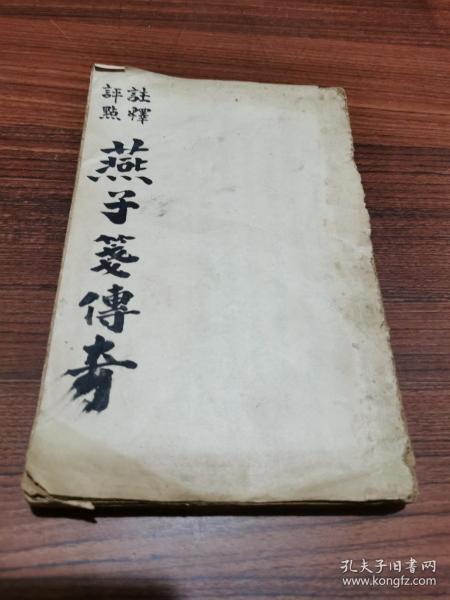 註釋
評點
燕子箋傳奇
孔夫子旧书网
www.kongfz.com